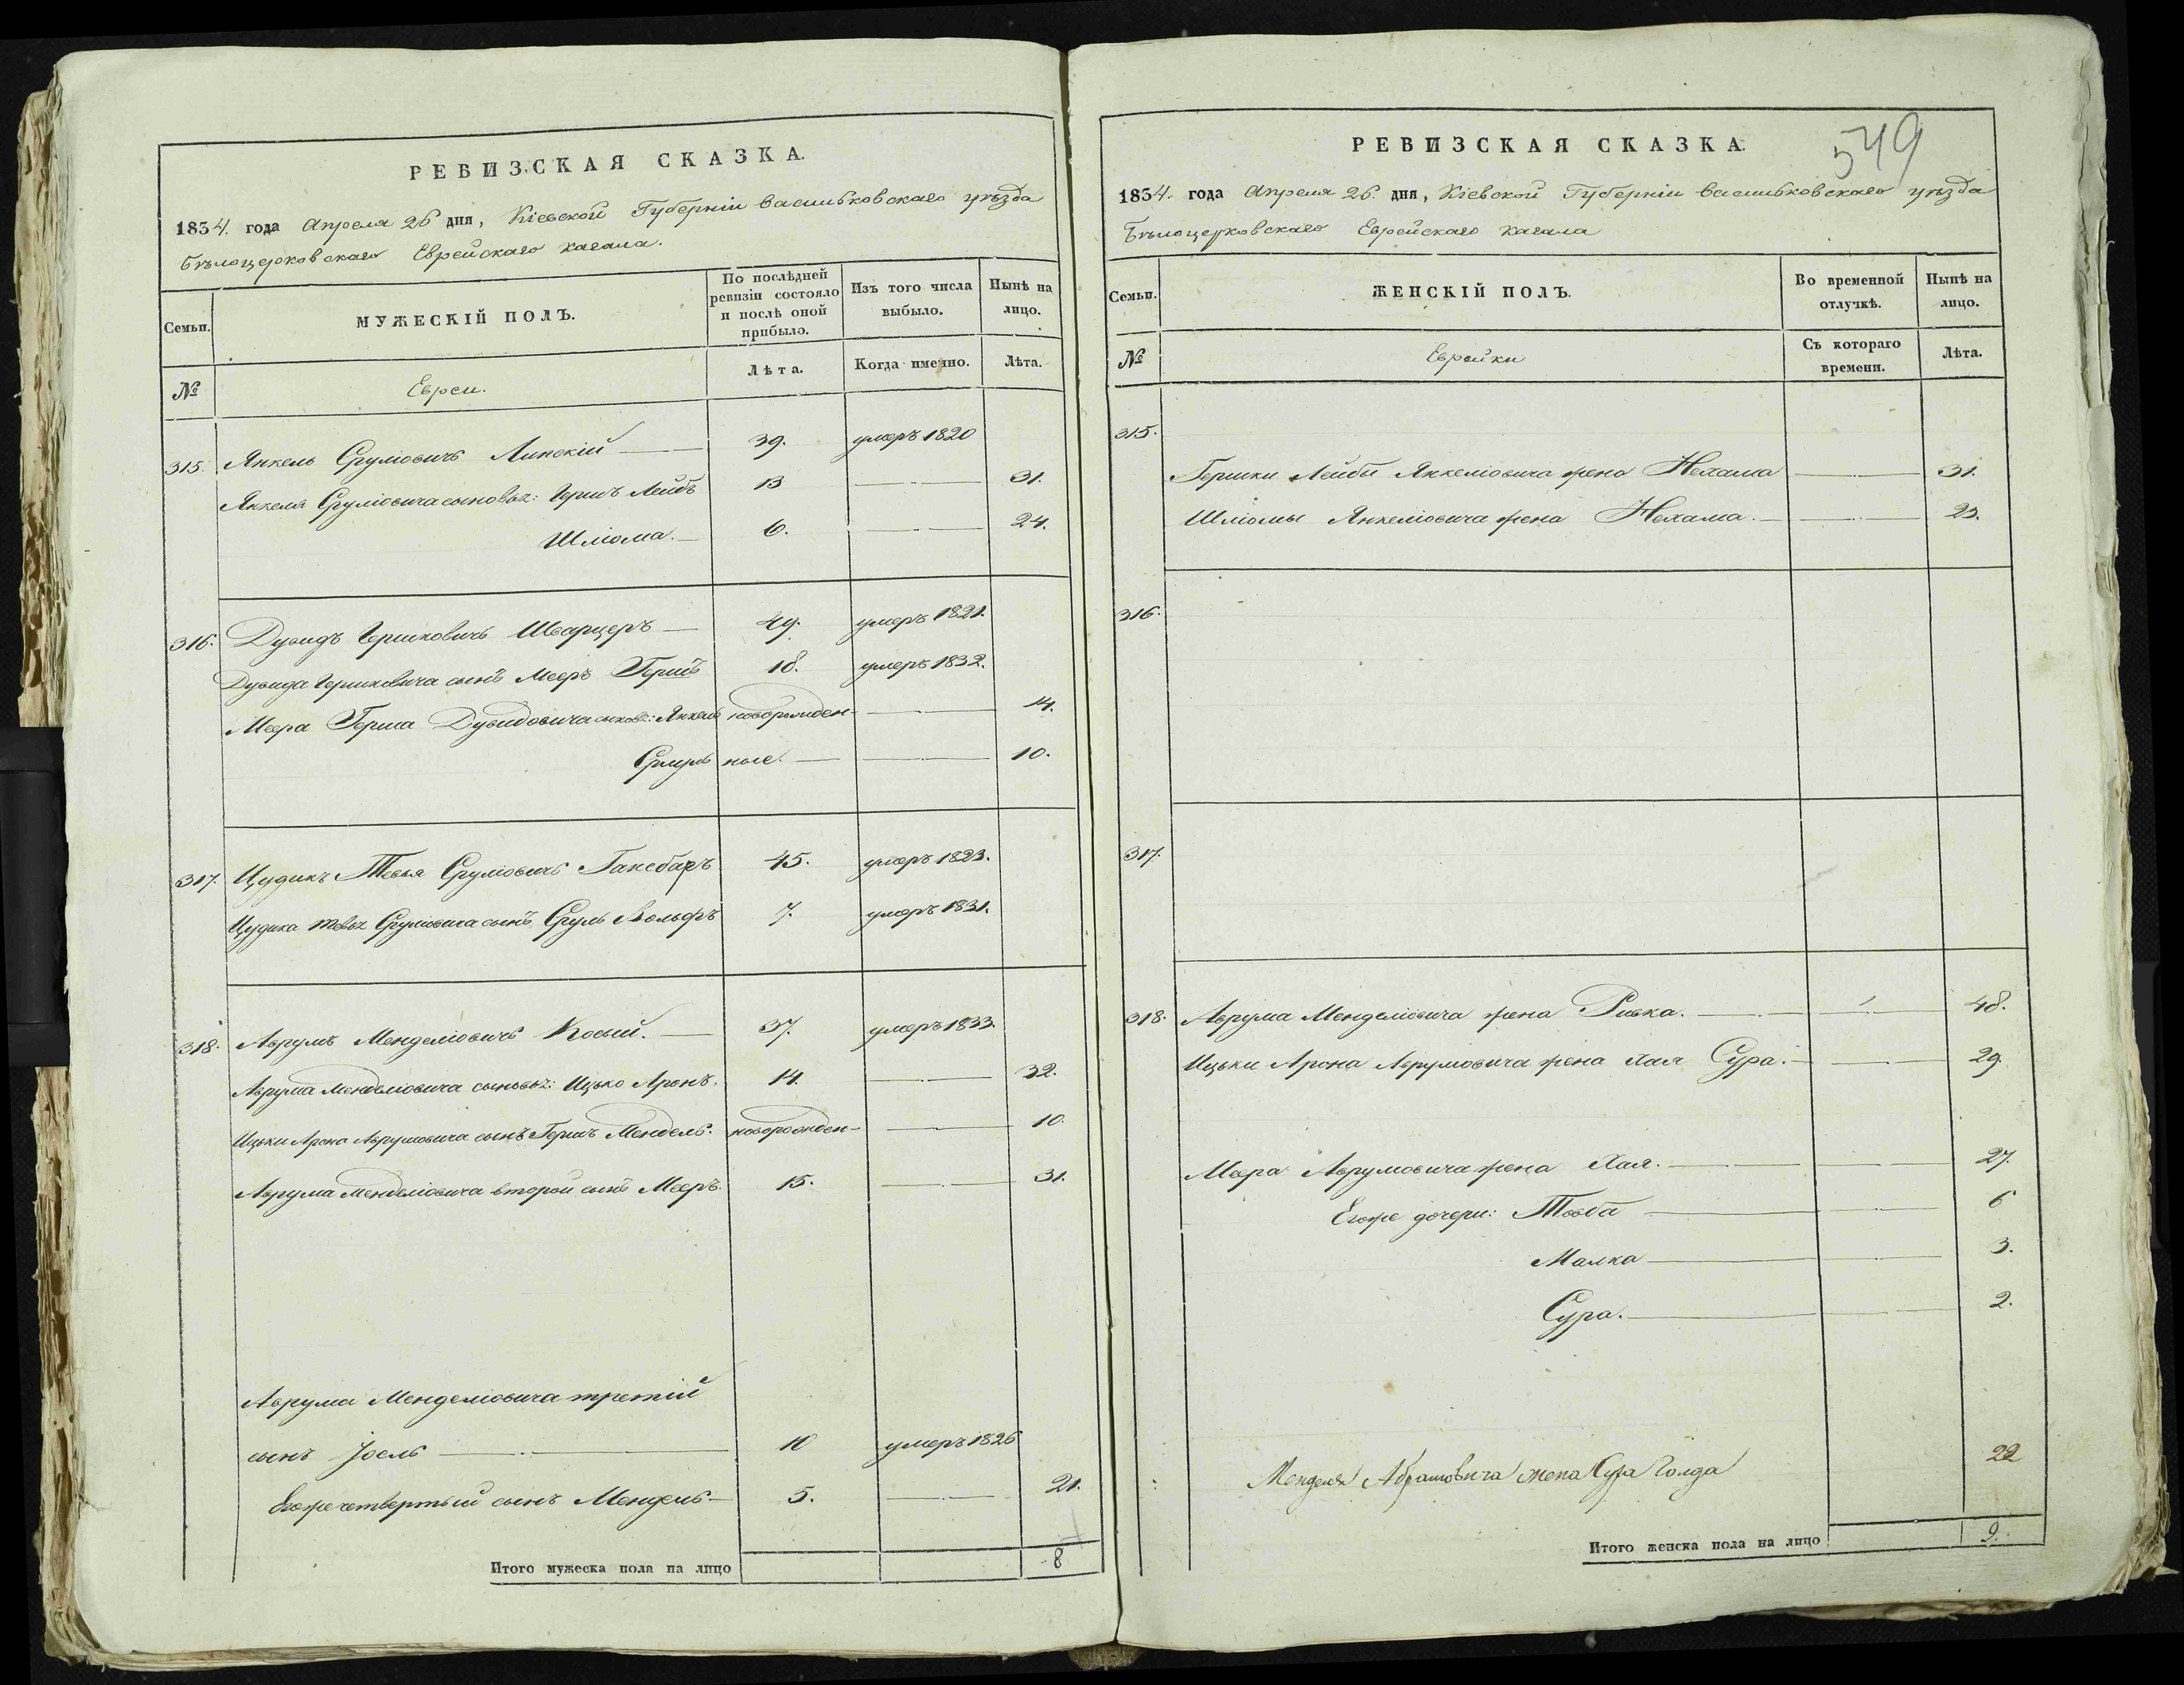 РЕВИЗСКАЯ СКАЗКА.
1834. года Апреля 26 дня, Кіевской Губерніи васильковскаго уѣзда
Бѣлоцерковскаго Еврейскаго кагала.
Семьи.
МУЖЕСКІЙ ПОЛЪ.
По послѣдней ревизіи состояло и послѣ оной прибыло.
Изъ того числа выбыло.
Нынѣ на лицо.
№
Евреи.
Лѣта.
Когда именно.
Лѣта.
315. Янкель Сруліовичъ Липскій 39. умеръ 1820
Янкеля Сруліовича сыновья: Гершъ Лейбъ 13 31.
Шліома. 6. 24.
316. Дувидъ Гершковичъ Шварцеръ 49. умеръ 1821.
Дувида Гершковича сынъ Мееръ Гершъ 18. умеръ 1832.
Меера Герша Дувидовича сыновья: Янкель новорожден- 14.
Сруль ные. 10.
317. Цудикъ Тевья Сруліовичъ Гансбаръ 45. умеръ 1823.
Цудика Тевья Сруліовича сынъ Сруль Вольфъ 7. умеръ 1831.
318. Аврумъ Менделіовичъ Косый. 37. умеръ 1833.
Аврума Менделіовича сыновья: Ицько Аронъ. 14. 32.
Ицьки Арона Аврумовича сынъ Гершъ Мендель. новорожден- 10.
Аврума Менделіовича второй сынъ Мееръ. 15. 31.
Аврума Менделіовича третій
сынъ Іосль 10 умеръ 1826
Егоже четвертый сынъ Мендель 5. 21.
Итого мужеска пола на лицо 8
549
РЕВИЗСКАЯ СКАЗКА.
1834. года Апреля 26. дня, Кіевской Губерніи васильковскаго уѣзда
Бѣлоцерковскаго Еврейскаго кагала
Семьи.
ЖЕНСКІЙ ПОЛЪ.
Во временной отлучкѣ.
Нынѣ на лицо.
№
Еврейки
Съ котораго времени.
Лѣта.
315.
Гершки Лейби Янкеліовича жена Нехама 31.
Шліомы Янкеліовича жена Нехама. 23.
316.
317.
318. Аврума Менделіовича жена Ривка. 48.
Ицьки Арона Аврумовича жена Хая Сура. 29.
Меера Аврумовича жена Хая. 27.
Егоже дочери: Товба 6
Малка 3.
Сура. 2.
Менделя Абрамовича жена Сура Голда 22
Итого женска пола на лицо 9.